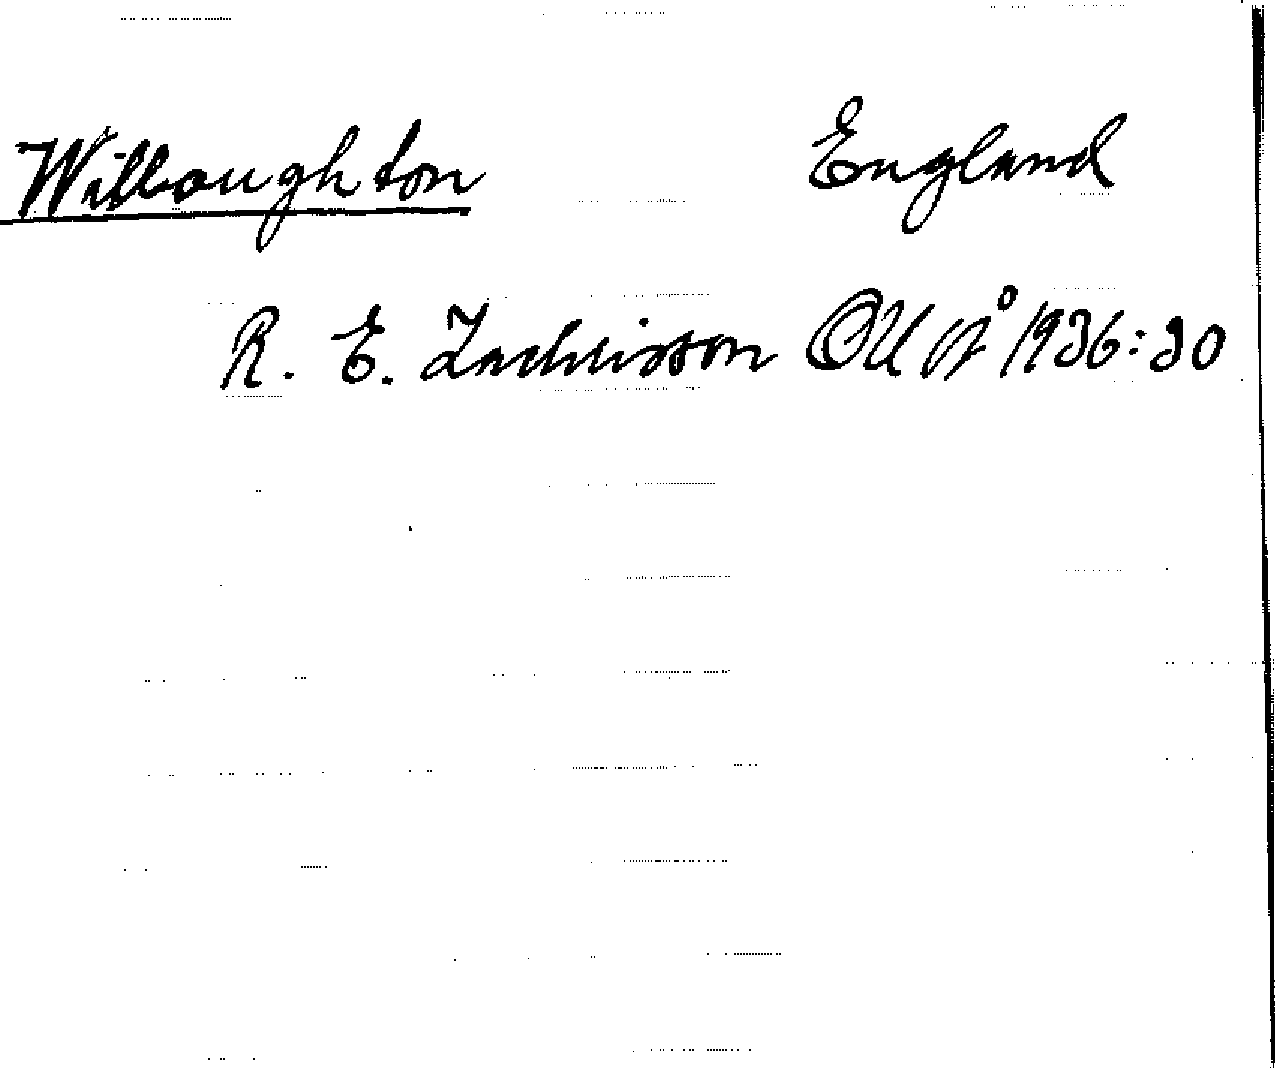 Willoughton England
R. E. Zachrisson UUÅ 1936:30